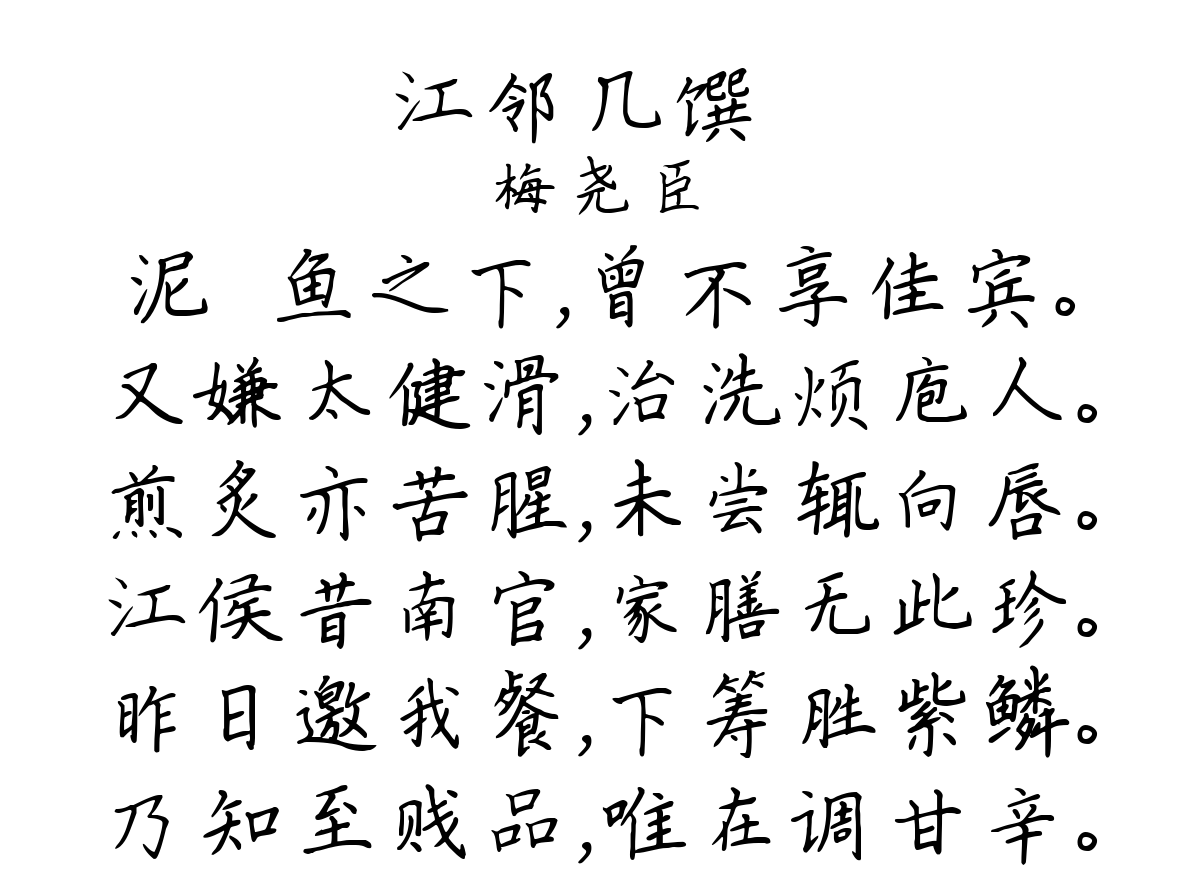 江邻几馔
梅尧臣
泥 鱼之下,曾不享佳宾。
又嫌太健滑,治洗烦庖人。
煎炙亦苦腥,未尝辄向唇。
江侯昔南官,家膳无此珍。
昨日邀我餐,下筹胜紫鳞。
乃知至贱品,唯在调甘辛。